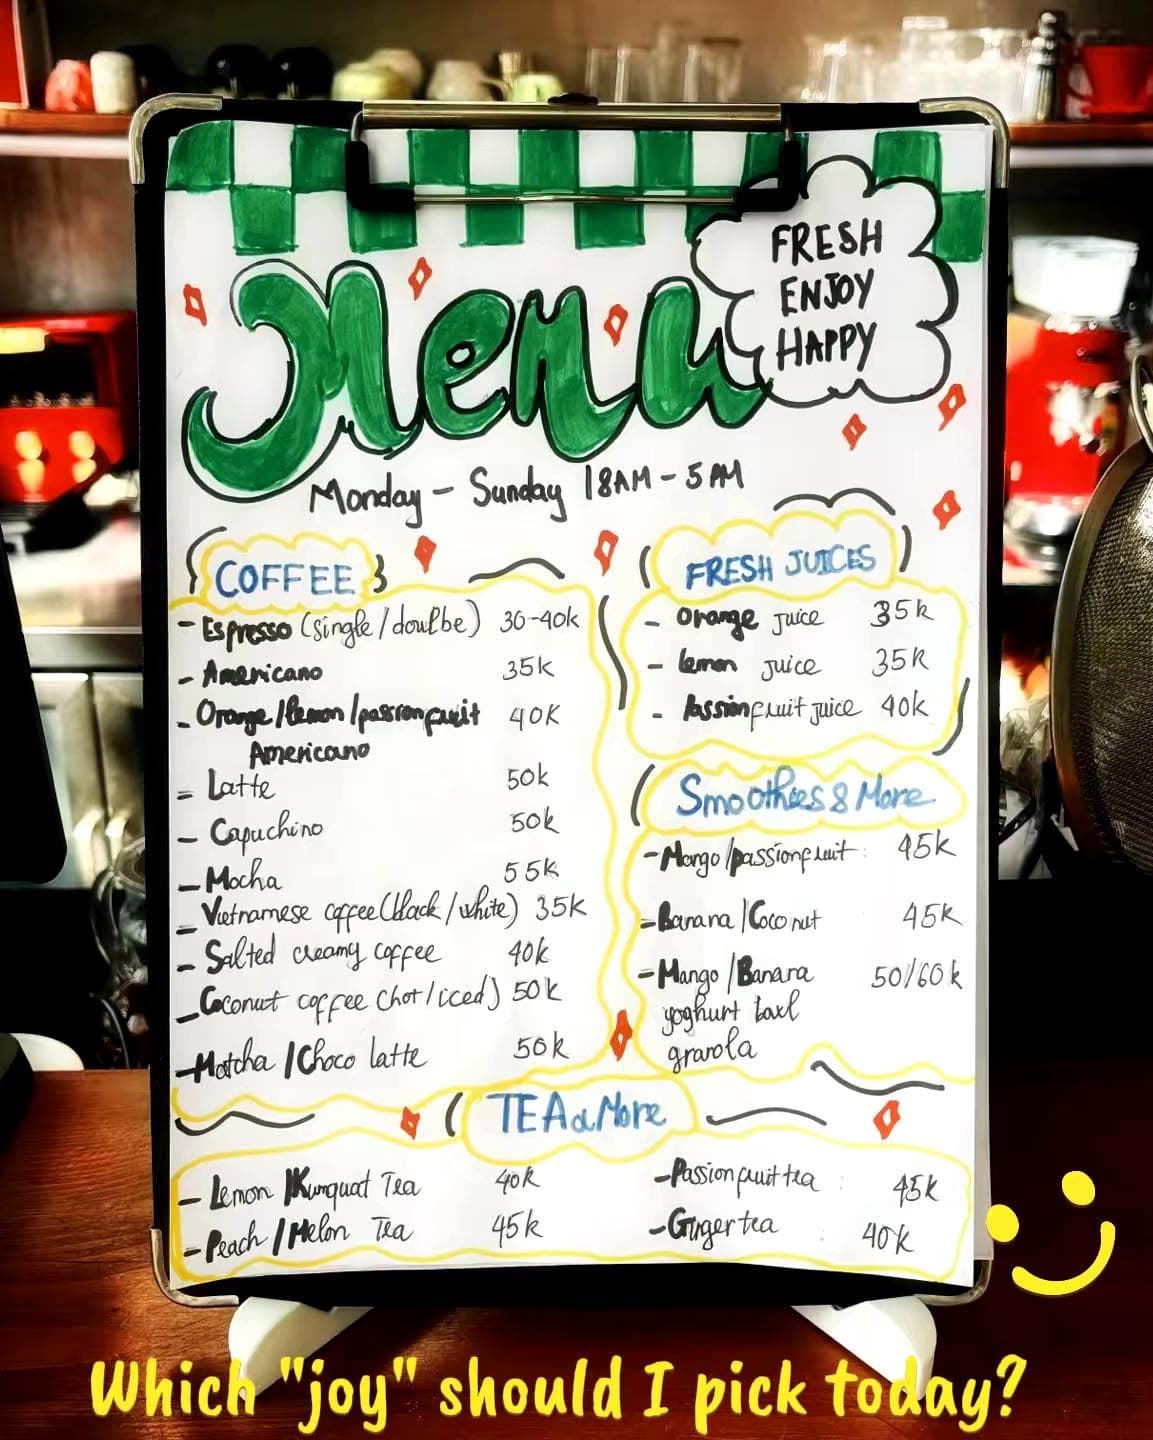 FRESH
ENJOY
HAPPY
Menu
Monday - Sunday | 8AM - 5 PM
COFFEE
- Espresso (single / doulbe) 30-40k
- Americano 35k
- Orange / lemon / passion fruit 40K
Americano
- Latte 50k
- Capuchino 50k
- Mocha 55k
- Vietnamese coffee (black / white) 35k
- Salted creamy coffee 40k
- Coconut coffee (hot / iced) 50k
- Matcha / Choco latte 50k
FRESH JUICES
- Orange juice 35k
- lemon juice 35k
- Passion fruit juice 40k
Smoothies & More
- Mango / passion fruit : 45k
- Banana / Coconut 45k
- Mango / Banana 50/60k
yoghurt bowl
granola
TEA & More
- Lemon / Kumquat Tea 40k
- Peach / Melon Tea 45k
- Passion fruit tea : 45k
- Ginger tea : 40k
Which "joy" should I pick today?